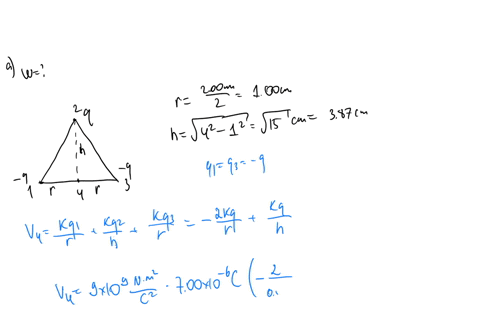 a) W=?
2q
r = 200cm/2 = 1.00cm
h = √4²-1² = √15 cm = 3.87cm
h
-q
-q
1 r 4 r 3
q₁ = q₃ = -q
V₄ = Kq₁/r + Kq₂/h + Kq₃/r = -2Kq/r + Kq/h
V₄ = 9x10⁹ N.m²/C² · 7.00x10⁻⁶C (-2/0.